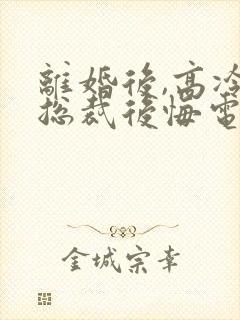 離婚後,高冷
總裁後悔電
金城宗幸